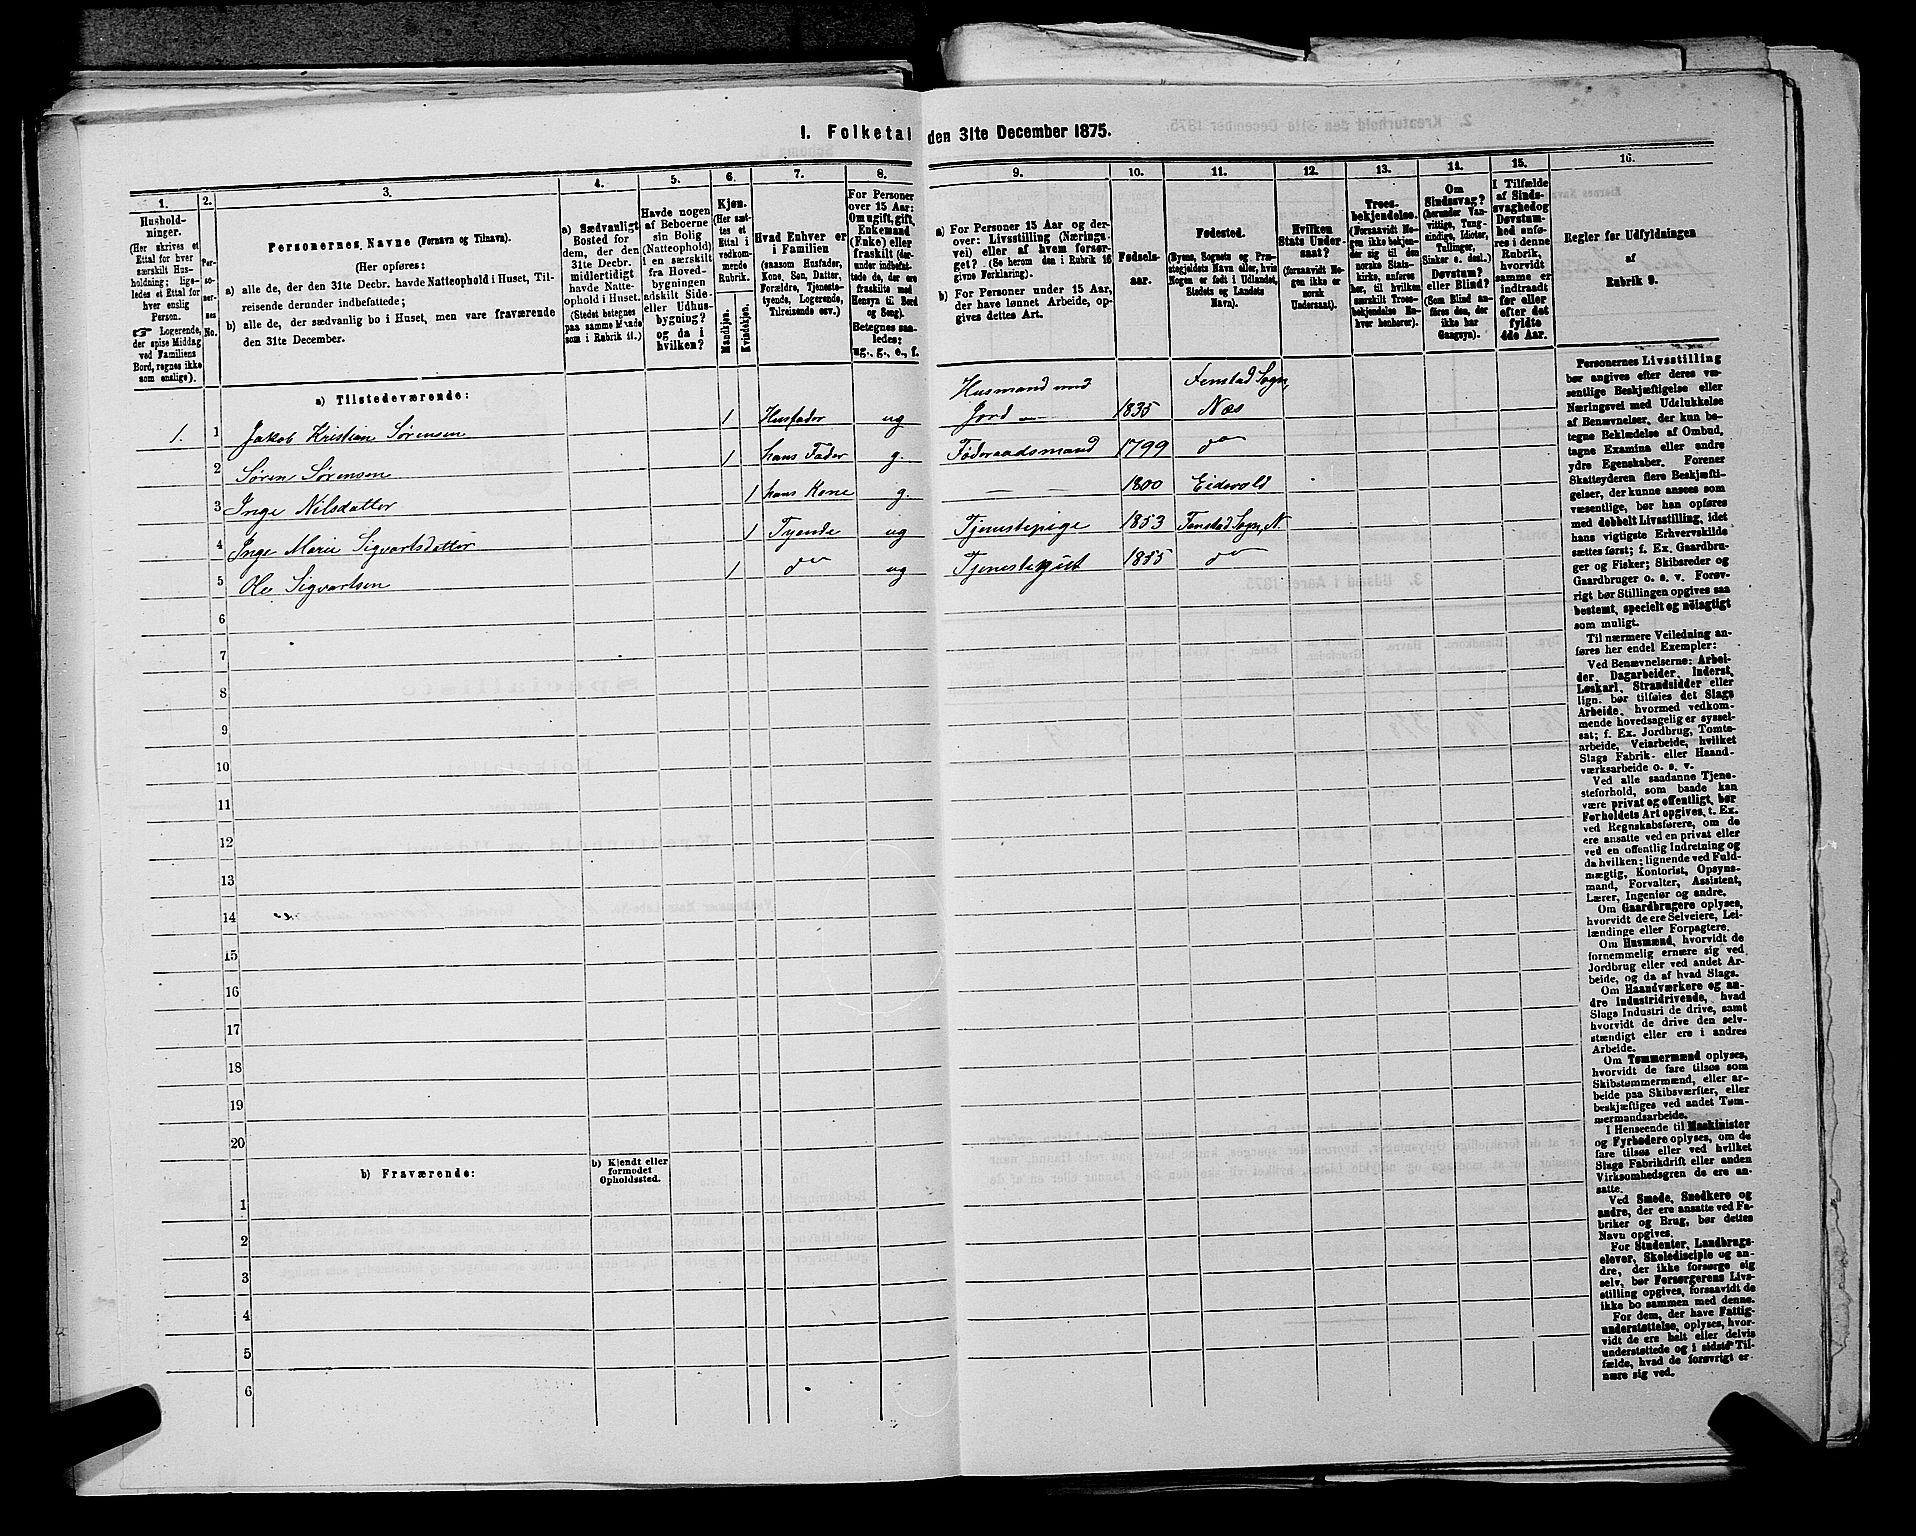 1. Folketal den 31te December 1875.
1. 2. 3. 4. 5. 6. 7. 8. 9. 10. 11. 12. 13. 14. 15. 16.
Hushold-
ninger.
(Her skrives et
Ettal for hver
særskilt Hus-
holdning; lige-
ledes et Ettal for
hver enslig
Person.
☞ Logerende,
der spise Middag
ved Familiens
Bord, regnes ikke
som enslige).
Per-
so-
ner-
nes
No.
Personernes Navne (Fornavn og Tilnavn).
(Her opføres:
a) alle de, der den 31te Decbr. havde Natteophold i Huset, Til-
reisende derunder indbefattede;
b) alle de, der sædvanlig bo i Huset, men vare fraværende
den 31te December.
a) Sædvanligt
Bosted for
dem, der den
31te Decbr.
midlertidigt
havde Natte-
ophold i Huset.
(Stedet betegnes
paa samme Maade
som i Rubrik 11.)
Havde nogen
af Beboerne
sin Bolig
(Natteophold)
i en særskilt
fra Hoved-
bygningen
adskilt Side-
eller Udhus-
bygning?
og da i
hvilken?
Kjøn.
(Her sæt-
tes et
Ettal i
vedkom-
mende
Rubrik.
Mandkjøn.
Kvindekjøn.
Hvad Enhver er
i Familien
(saasom Husfader,
Kone, Søn, Datter,
Forældre, Tjeneste-
tyende, Logerende,
Tilreisende osv.)
For Personer
over 15 Aar:
Om ugift, gift,
Enkemand
(Enke) eller
fraskilt (der-
under indbefat-
tede de, der ere
fraskilte med
Hensyn til Bord
og Seng).
Betegnes saa-
ledes:
ug., g., e., f.
a) For Personer 15 Aar og der-
over: Livsstilling (Nærings-
vei) eller af hvem forsør-
get? (Se herom den i Rubrik 16
givne Forklaring).
b) For Personer under 15 Aar,
der have lønnet Arbeide, op-
gives dettes Art.
Fødsels-
aar.
Fødested.
(Byens, Sognets og Præ-
stegjeldets Navn eller, hvis
Nogen er født i Udlandet,
Stedets og Landets
Navn).
Hvilken
Stats Under-
saat?
(forsaavidt No-
gen ikke er
norsk
Undersaat).
Troes-
bekjendelse.
(Forsaavidt No-
gen ikke bekjen-
der sig til den
norske Stats-
kirke, anføres
her, til hvilken
særskilt Troes-
bekjendelse En-
hver henhører).
Om
Sindssvag?
(herunder Van-
vittige, Tung-
sindige, Idioter,
Tullinger,
Sinker o. desl.).
Døvstum?
eller Blind?
(Som Blind an-
føres den, der
ikke har
Gangsyn).
I Tilfælde
af Sinds-
svaghed og
Døvstum-
hed anfø-
res i denne
Rubrik,
hvorvidt
samme er
indtraadt
før eller
efter det
fyldte
4de Aar.
Regler for Udfyldningen
af
Rubrik 9.
a) Tilstedeværende:
1. 1 Jakob Kristian Sørensen 1 Husfader ug Husmand med Jord — 1835 Fenstad Sogn, Næs
2 Søren Sørensen 1 hans Fader g. Føderaadsmand 1799 do
3 Inge Nilsdatter 1 hans Kone g. — — 1800 Eidsvold
4 Inge Marie Sigvartsdatter 1 Tyende ug Tjenestepige 1853 Fenstad Sogn, N.
5 Ole Sigvartsen 1 do ug Tjenestegut 1855 do
6
7
8
9
10
11
12
13
14
15
16
17
18
19
20
b) Fraværende:
b) Kjendt eller
formodet
Opholdssted.
1
2
3
4
5
6
Personernes Livsstilling
bør angives efter deres væ-
sentlige Beskjæftigelse eller
Næringsvei med Udelukkelse
af Benævnelser, der kun be-
tegne Beklædelse af Ombud,
tagne Examina eller andre
ydre Egenskaber. Forener
Skatteyderen flere Beskjæfti-
gelser, der kunne ansees som
væsentlige, bør han opføres
med dobbelt Livsstilling, idet
hans vigtigste Erhvervskilde
sættes først; f. Ex. Gaardbru-
ger og Fisker; Skibsreder og
Gaardbruger o. s. v. Forøv-
rigt bør Stillingen opgives saa
bestemt, specielt og nøiagtigt
som muligt.
Til nærmere Veiledning an-
føres her endel Exempler:
Ved Benævnelserne: Arbei-
der, Dagarbeider, Inderst,
Løskarl, Strandsidder eller
lign. bør tilføies det Slags
Arbeide, hvormed vedkom-
mende hovedsagelig er syssel-
sat; f. Ex. Jordbrug, Tomte-
arbeide, Veiarbeide, hvilket
Slags Fabrik- eller Haand-
værksarbeide o. s. v.
Ved alle saadanne Tjene-
steforhold, som baade kan
være privat og offentligt, bør
Forholdets Art opgives, t. Ex.
ved Regnskabsførere, om de
ere ansatte ved en privat eller
ved en offentlig Indretning og
da hvilken; lignende ved Fuld-
mægtig, Kontorist, Opsyns-
mand, Forvalter, Assistent,
Lærer, Ingeniør og andre.
Om Gaardbrugere oplyses,
hvorvidt de ere Selveiere, Lei-
lændinge eller Forpagtere.
Om Husmænd, hvorvidt de
fornemmelig ernære sig ved
Jordbrug eller ved andet Ar-
beide, og da af hvad Slags.
Om Haandværkere og an-
dre Industridrivende, hvad
Slags Industri de drive, samt
hvorvidt de drive den selv-
stændigt eller ere i andres
Arbeide.
Om Tømmermænd oplyses,
hvorvidt de fare tilsøs som
Skibstømmermænd, eller ar-
beide paa Skibsværfter, eller
beskjæftiges ved andet Tøm-
mermandsarbeide.
I Henseende til Maskinister
og Fyrbødere oplyses, om de
fare tilsøs eller ved hvilket
Slags Fabrikdrift eller anden
Virksomhedsgren de ere an-
satte.
Ved Smede, Snedkere og
andre, der ere ansatte ved Fa-
briker og Brug, bør dettes
Navn opgives.
For Studenter, Landbrugs-
elever, Skoledisciple og an-
dre, der ikke forsørge sig
selv, bør Forsørgerens Livs-
stilling opgives, forsaavidt de
ikke bo sammen med denne.
For dem, der have Fattig-
understøttelse, oplyses, hvor-
vidt de ere helt eller delvis
understøttede og i sidste Til-
fælde, hvad de forøvrigt er-
nære sig ved.